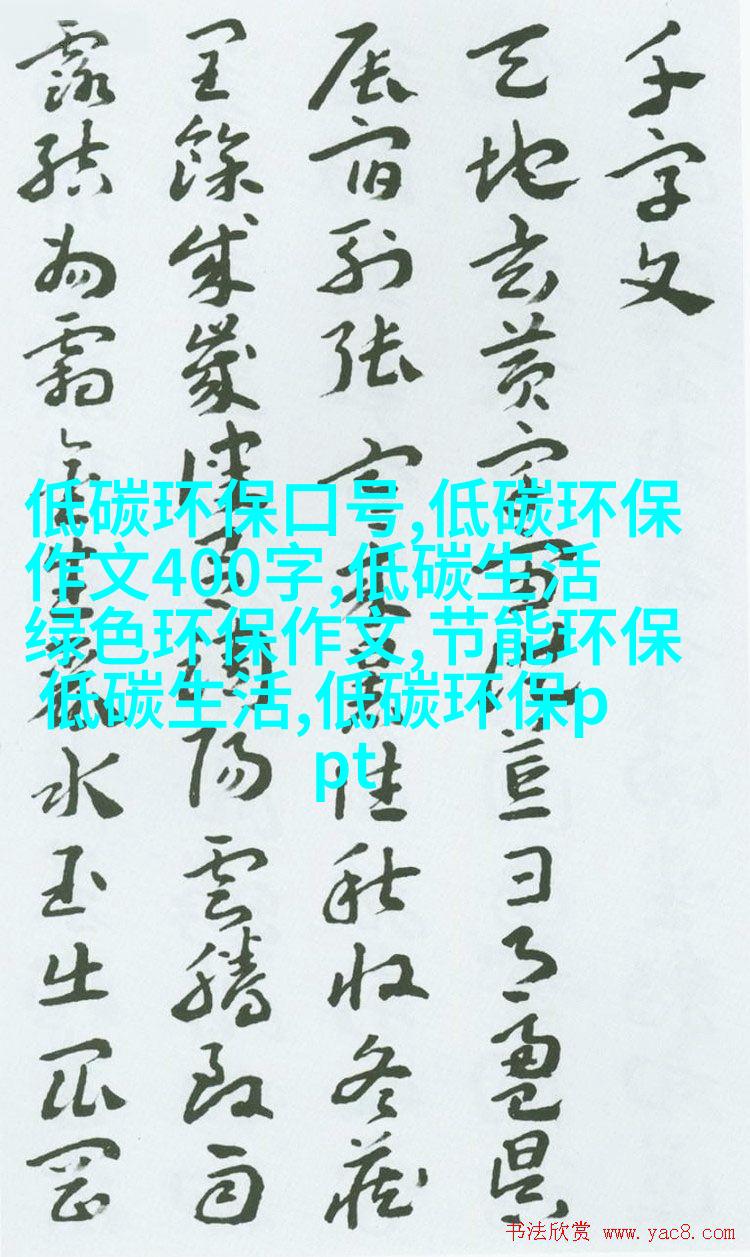 千字文
天地玄黄宇宙洪荒日月盈昃
辰宿列張寒来暑往秋收冬藏
閏餘成歲律吕調陽雲騰致雨
露結為霜金生麗水玉出崑岡
低碳环保口号,低碳环保
作文400字,低碳生活
绿色环保作文,节能环保
低碳生活,低碳环保p
pt
书法欣赏 www.yac8.com